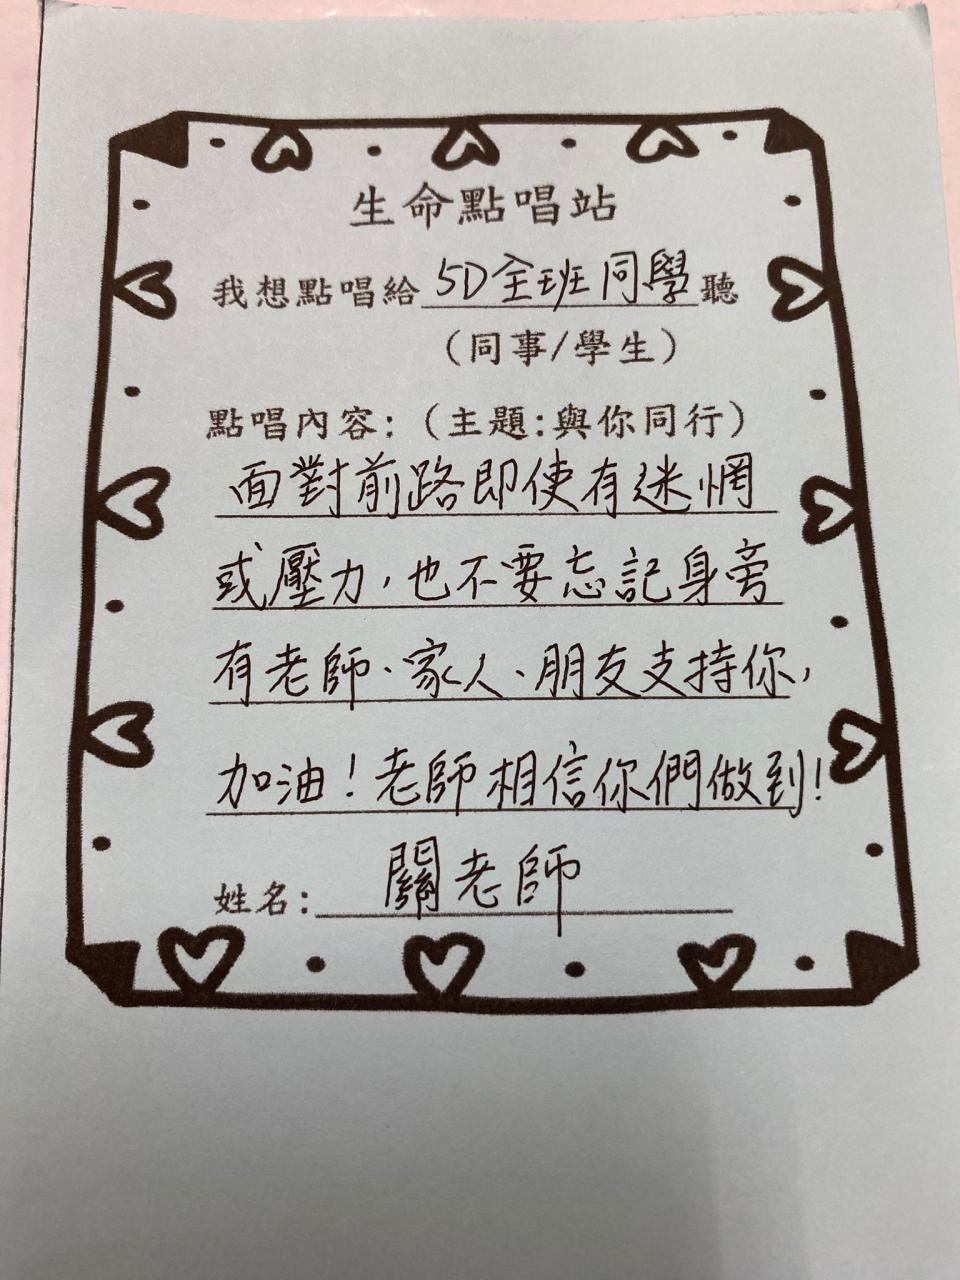 生命點唱站
我想點唱給 5D全班同學 聽
（同事/學生）
點唱內容：（主題：與你同行）
面對前路即使有迷惘
或壓力，也不要忘記身旁
有老師、家人、朋友支持你，
加油！老師相信你們做到！
姓名： 關老師